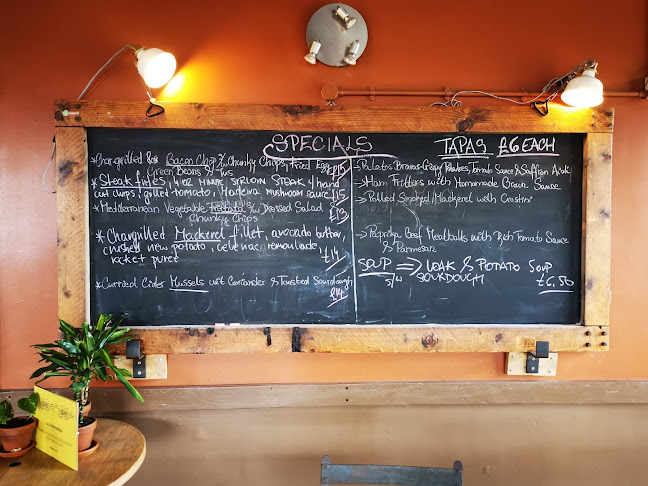 SPECIALS
* Chargrilled 8oz Bacon Chop w/ Chunky Chips, Fried Egg
Green Beans & Jus £15
* Steak frites, 4oz MINUTE SIRLOIN STEAK, hand
cut chips, grilled tomato, Madeira mushroom sauce £15
* Mediterranean Vegetable w/ Dressed Salad
Chunky Chips £13
* Chargrilled Mackerel fillet, avocado butter,
crushed new potato, celeriac remoulade,
rocket puree £14
* Curried Cider Mussels wit Coriander & Toasted Sourdough
£14
TAPAS £6 EACH
Patatas Bravas - Crispy Potatoes, Tomato Sauce & Saffron Aioli
→ Ham Fritters with Homemade Brown Sauce
→ Pulled Smoked Mackerel with Crostini
→ Paprika Beef Meatballs with Rich Tomato Sauce
& Parmesan
SOUP ⇒ LEAK & POTATO SOUP
S/W SOURDOUGH £6.50